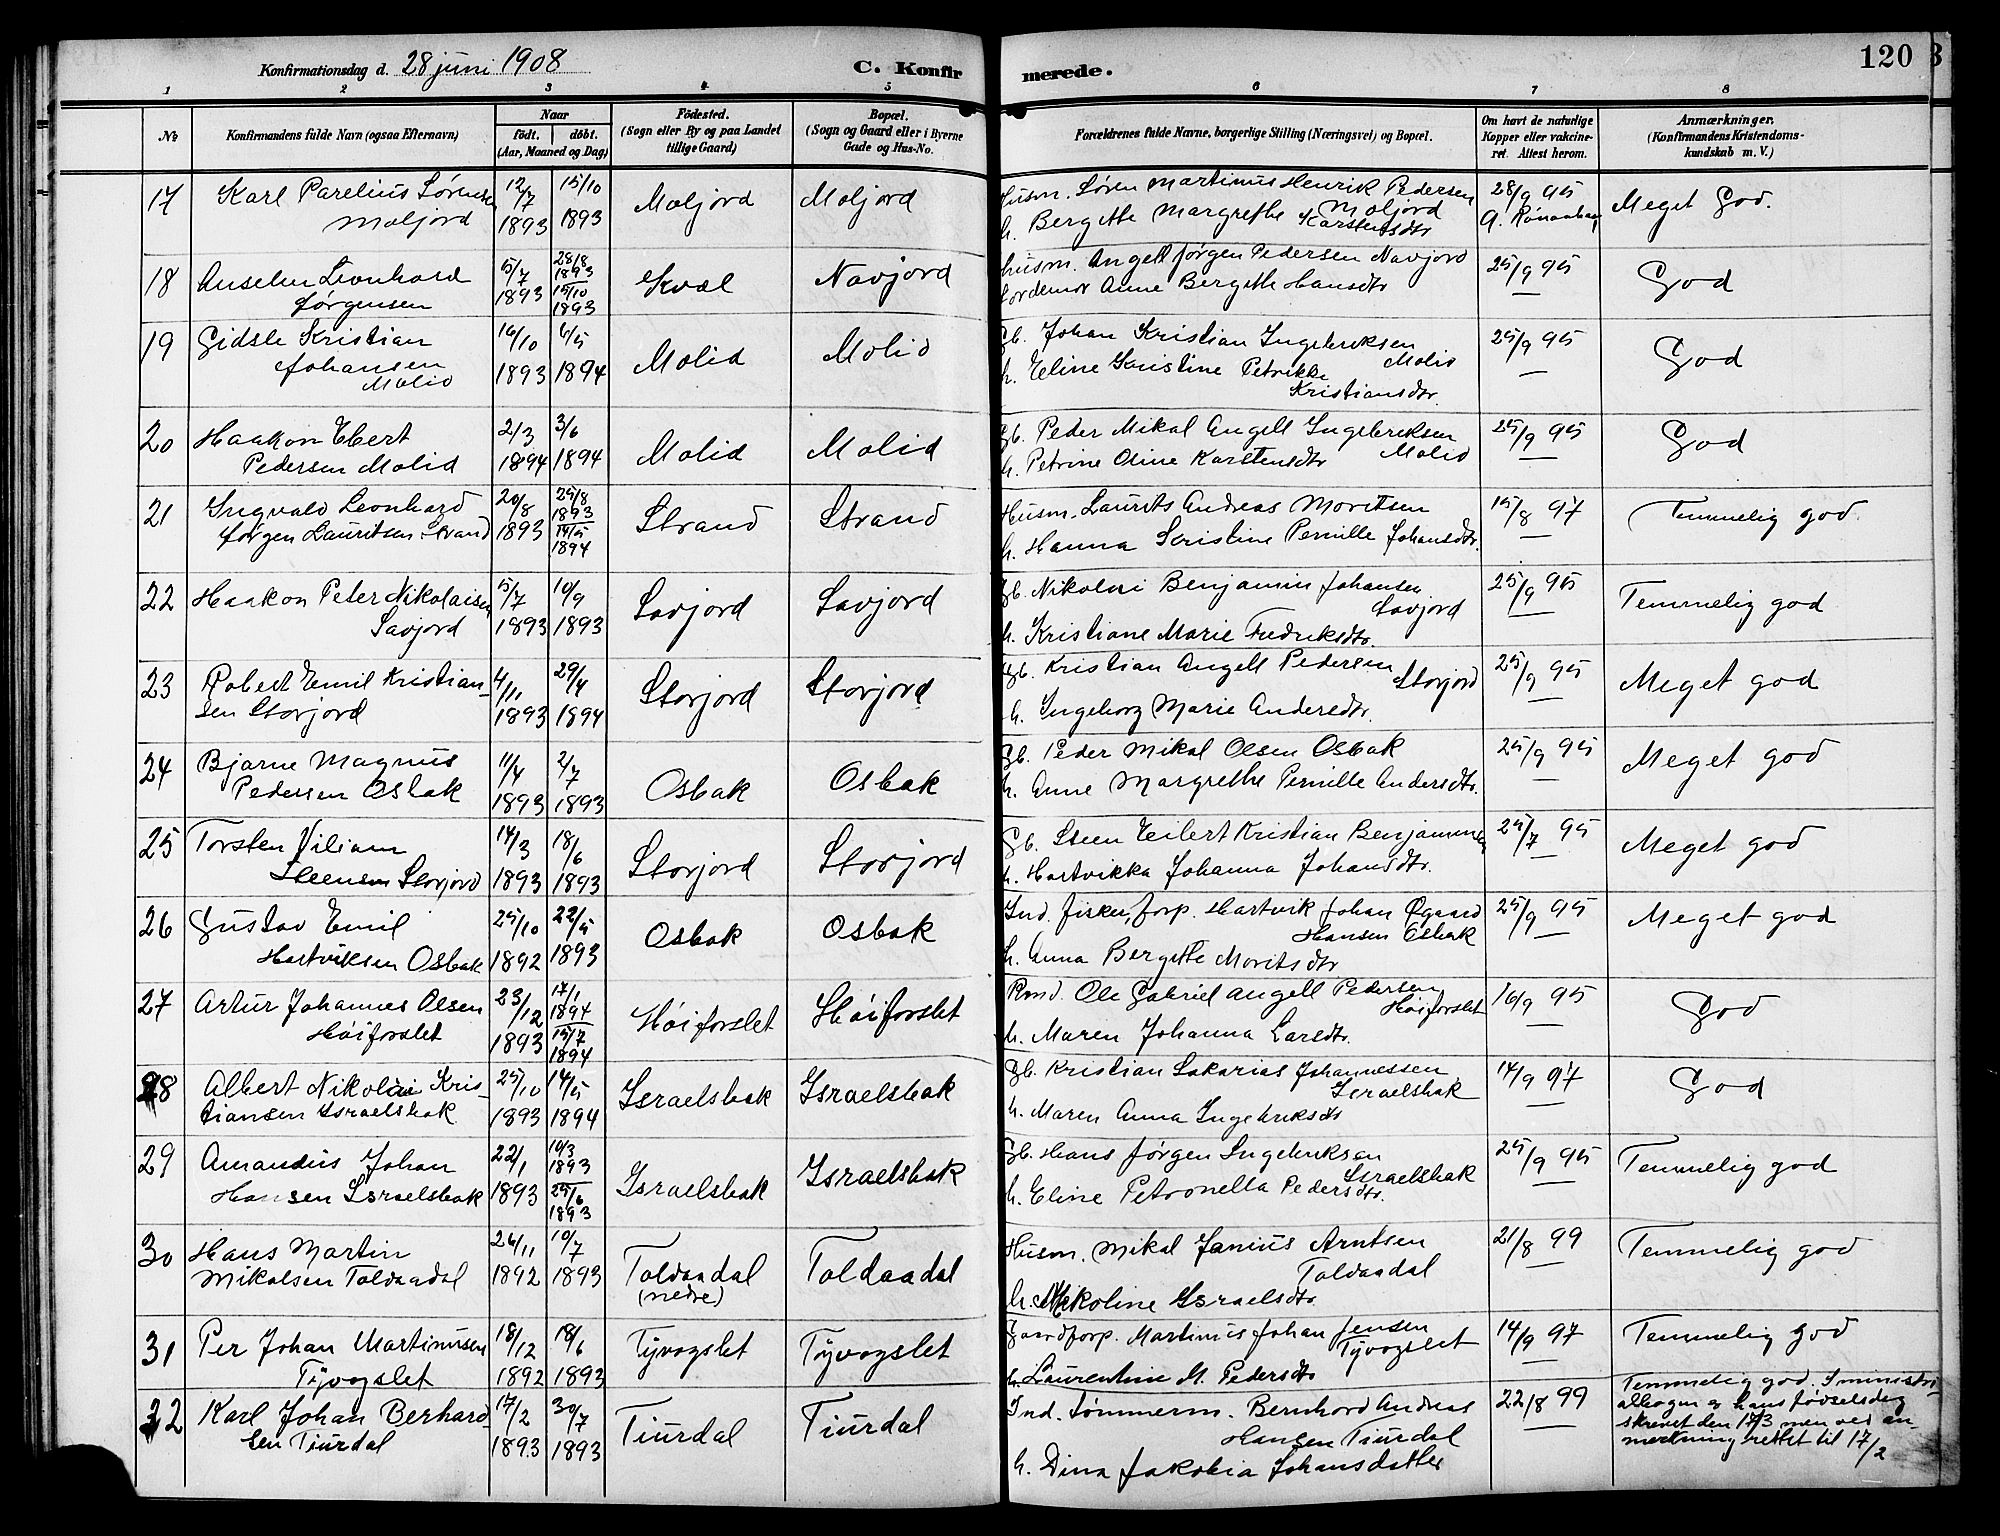 Konfirmationsdag d. 28 juni 1908
C. Konfirmerede.
120
1 2 3 4 5 6 7 8
№
Konfirmandens fulde Navn (ogsaa Efternavn)
Naar
født. døbt.
(Aar, Maaned og Dag)
Födested.
(Sogn eller By og paa Landet
tillige Gaard)
Bopæl.
(Sogn og Gaard eller i Byerne
Gade og Hus-No.
Forældrenes fulde Navne, borgerlige Stilling (Næringsvei) og Bopæl.
Om havt de naturlige
Kopper eller vakcine-
ret. Attest herom.
Anmærkninger.
(Konfirmandens Kristendoms-
kundskab m. V.)
17 Karl Parelius Sørensen 12/7 15/10 Moljord Moljord Husm. Søren Martinus Henrik Pedersen 28/9 95 Meget God.
Moljord 1893 1893 Moljord
h. Bergitte Margrethe Karstensdtr
18 Anselm Leonhard 5/7 28/8 1893 Kvæl Navjord Husm. Angell Jørgen Pedersen Navjord 25/9 95 God
Jørgensen 1893 15/10 1893 Fordemor Anne Bergithe Hansdtr
19 Gidsle Kristian 16/10 6/5 Molid Molid Gb. Johan Kristian Ingebriksen 25/9 95 God
Johansen 1893 1894 Molid
Molid h. Eline Kristine Petrikke
Kristiansdtr.
20 Haakon Ebert 2/3 3/6 Molid Molid Gb. Peder Mikal Angell Ingebriksen 25/9 95 God
Pedersen Molid 1894 1894 h. Petrine Oline Karstensdtr Molid
21 Ingvald Leonhard 20/8 29/8 1893 Strand Strand Husm. Laurits Andreas Moritsen 15/8 97 Temmelig god.
Jørgen Lauritsen Strand 1893 14/5 1894 h. Hanna Kristine Pernille Johansdtr.
22 Haakon Peter Nikolaisen 5/7 10/9 Savjord Savjord Gb. Nikolai Benjamin Johansen 25/9 95 Temmelig god
Savjord 1893 1893 Savjord
h. Kristiane Marie Fredriksdtr.
23 Robert Emil Kristian- 4/11 29/4 Storjord Storjord Gb. Kristian Angell Pedersen 25/9 95 Meget god
sen Storjord 1893 1894 Storjord
h. Ingeborg Marie Andersdtr.
24 Bjarne Magnus 11/4 2/7 Osbak Osbak Gb. Peder Mikal Olsen Osbak 25/9 95 Meget god
Pedersen Osbak 1893 1893 h. Anne Margrethe Pernille Andersdtr.
25 Torsten Viliam 14/3 18/6 Storjord Storjord Gb. Steen Eilert Kristian Benjaminsen 25/7 95 Meget god
Steensen Storjord 1893 1893 h. Hartvikka Johanna Johansdtr.
26 Gustav Emil 25/10 22/5 Osbak Osbak Ind. fisker, forp. Hartvik Johan Øgaard 25/9 95 Meget god
Hartviksen Osbak 1892 1893 Hansen Osbak
h. Anna Bergitte Moritsdtr
27 Artur Johannes Olsen 23/12 17/1 1894 Høiforslet Høiforslet Rmd. Ole Gabriel Angell Pedersen 16/9 95 God
Høiforslet 1893 15/7 1894 Høiforslet
h. Maren Johanna Larsdtr.
28 Albert Nikolai Kris- 25/10 14/5 Israelsbak Israelsbak Gb. Kristian Sakarias Johannessen 14/9 97 God
tiansen Israelsbak 1893 1894 Israelsbak
h. Maren Anna Ingebriksdtr
29 Amandus Johan 22/1 10/3 1893 Israelsbak Israelsbak Gb. Hans Jørgen Ingebriksen 25/9 95 Temmelig god
Hansen Israelsbak 1893 25/6 1893 Israelsbak
h. Eline Petronella Pedersdtr.
30 Hans Martin 26/11 10/7 Toldaadal Toldaadal Husm. Mikal Janius Arntsen 21/8 99 Temmelig god
Mikalsen Toldaadal 1892 1893 (nedre) Toldaadal
h. Nikoline Israelsdtr.
31 Per Johan Martinusen 18/12 18/6 Tyvogslet Tyvogslet Gaardforp. Martinus Johan Jensen 14/9 97 Temmelig god
Tyvogslet 1892 1893 Tyvogslet
h. Laurentine M. Pedersdtr
32 Karl Johan Berhard- 17/2 30/7 Tiurdal Tiurdal Ind. tømmerm. Bernhard Andreas 22/8 99 Temmelig god. I ministri-
sen Tiurdal 1893 1893 Hansen Tiurdal albogen er hans fødselsdag
h. Dina Jakobia Johansdatter skrevet den 17/3 men ved an-
mærkning rettet til 17/2